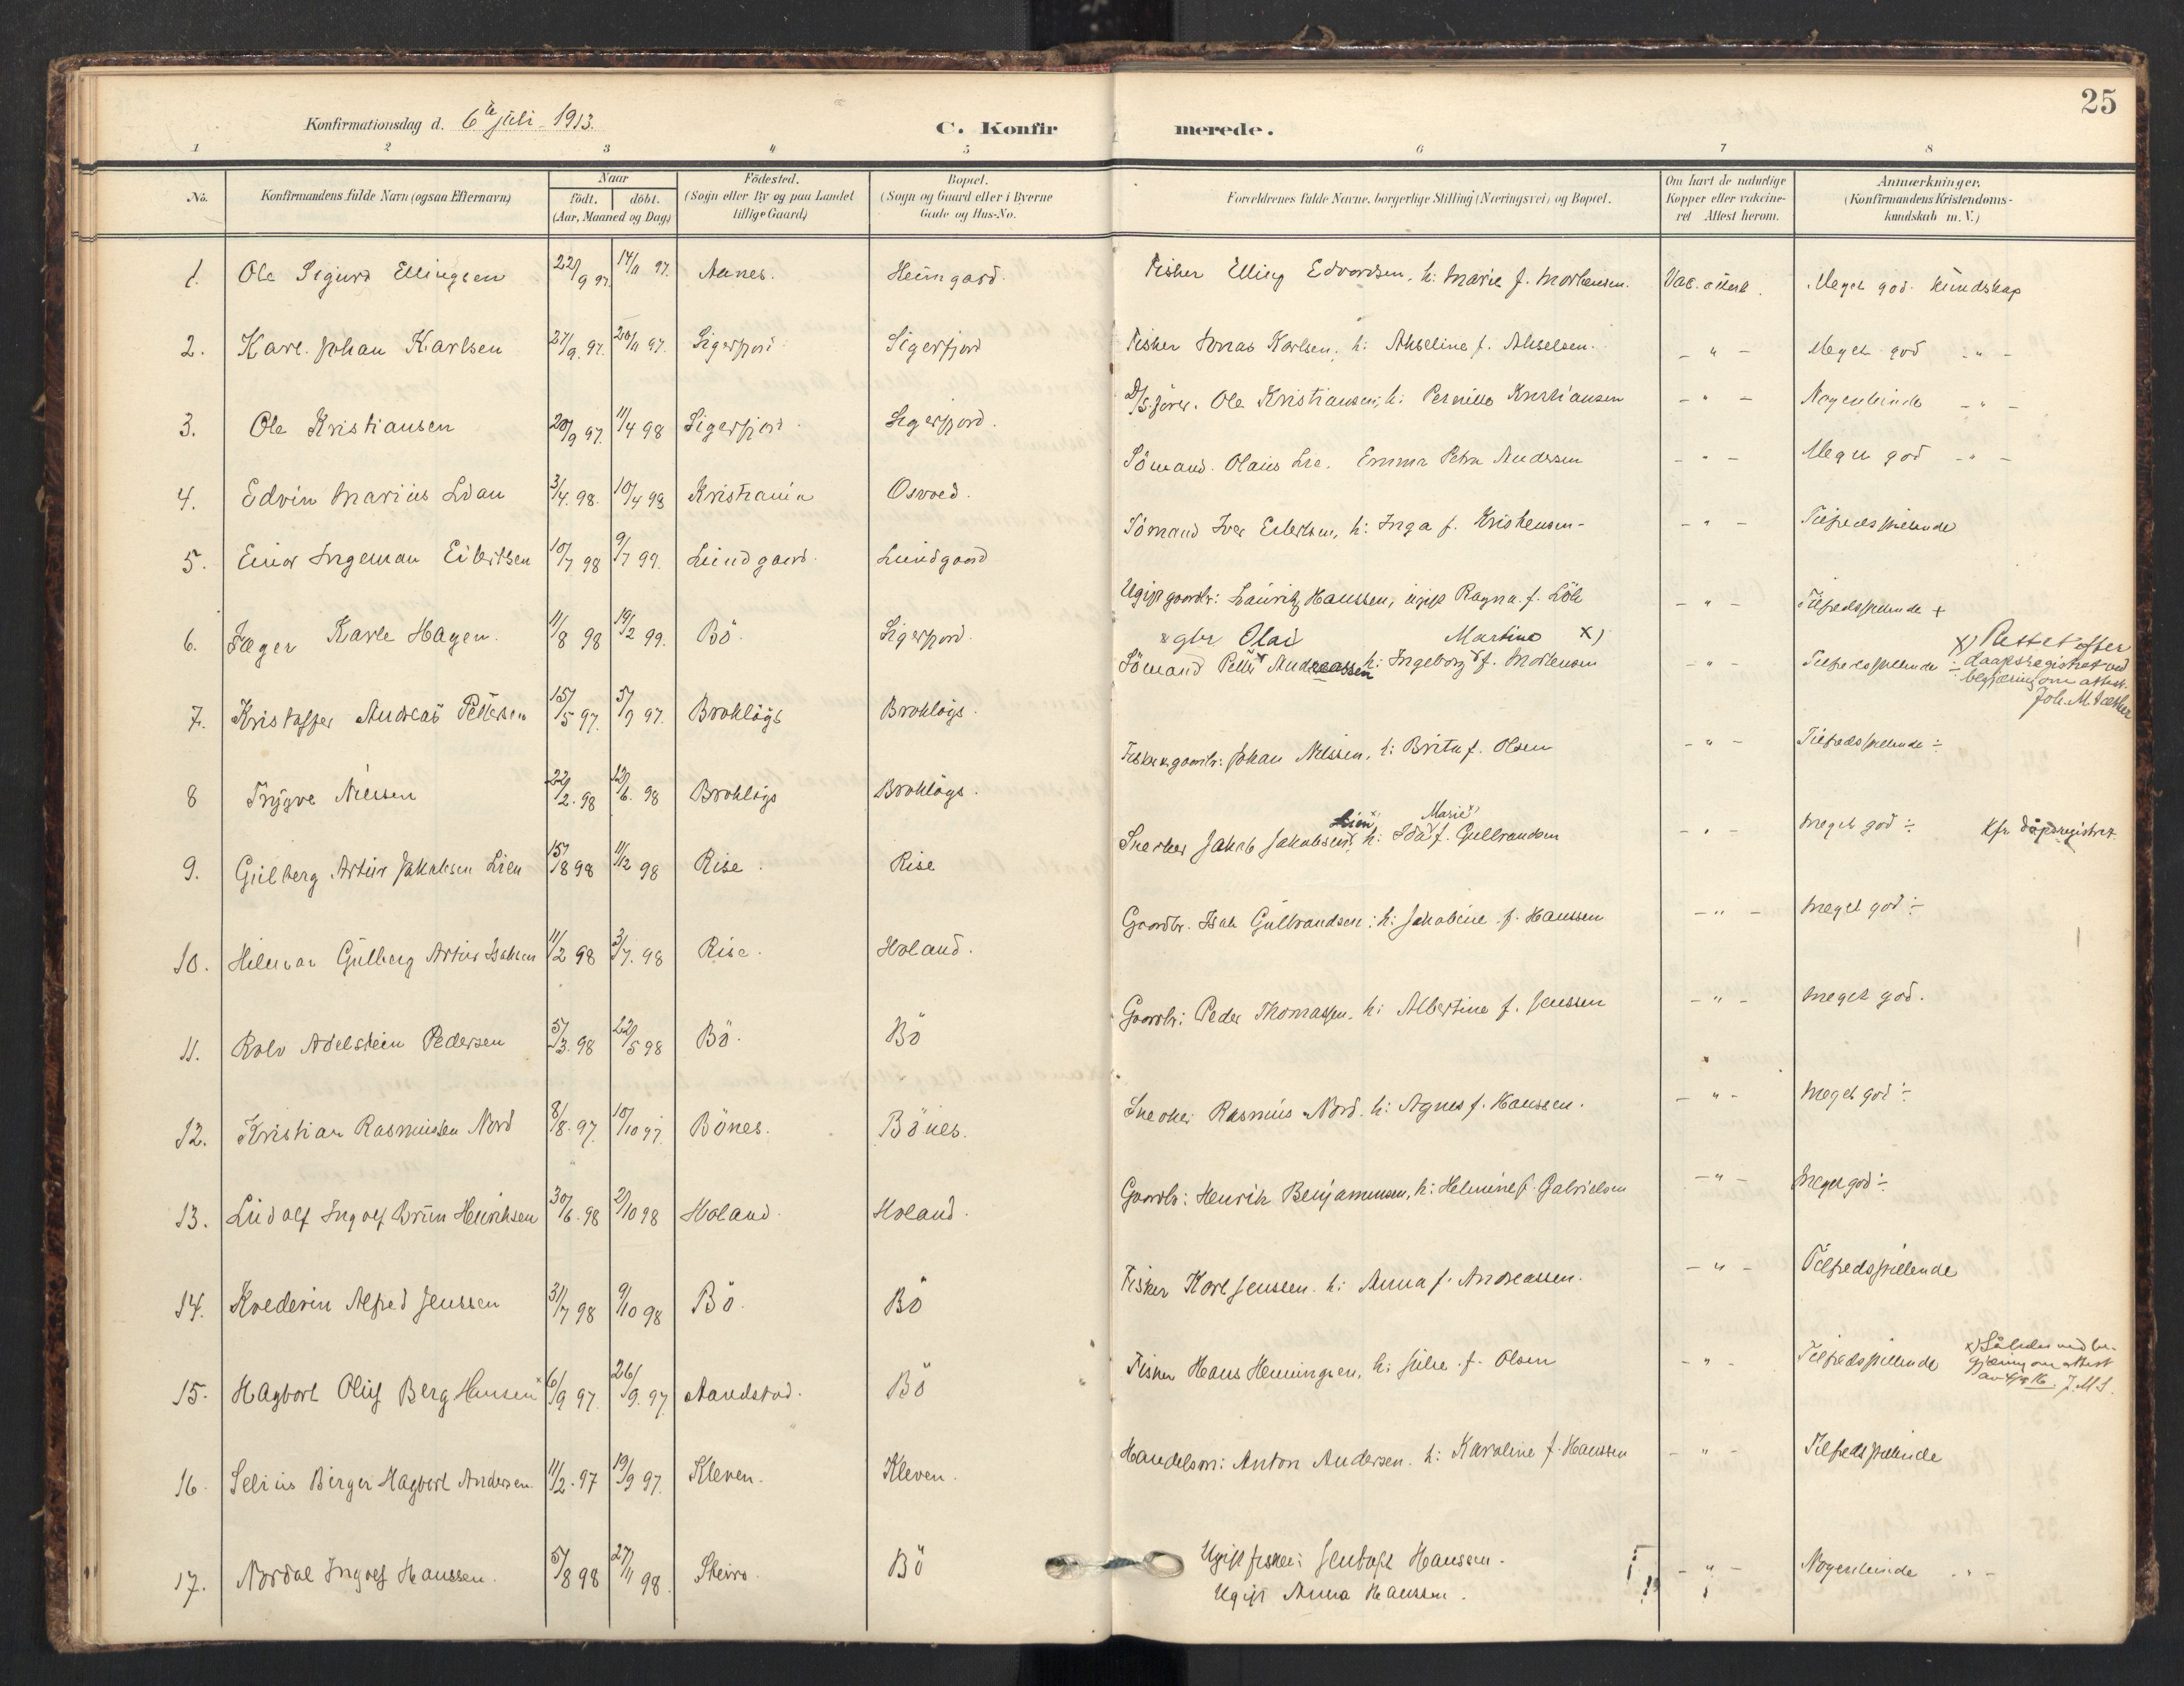 25
Konfirmationsdag d. 6te juli 1913.
C. Konfirmerede.
1 2 3 4 5 6 7 8
No.
Konfirmandens fulde Navn (ogsaa Efternavn)
Naar
födt. döbt.
(Aar, Maaned og Dag)
Födested.
(Sogn eller By og paa Landet
tillige Gaard)
Bopæl.
(Sogn og Gaard eller i Byerne
Gade og Hus-No.
Forældrenes fulde Navne, borgerlige Stilling (Næringsvei) og Bopæl.
Om havt de naturlige
Kopper eller vakcine-
ret Attest herom.
Anmærkninger.
(Konfirmandens Kristendoms-
kundskab m. V.)
1. Ole Sigurd Ellingsen 22/9 97. 14/11 97. Aanes. Heimgard. Fisker Elling Edvardsen, h: Marie f. Mortensen. Vac. attest. Meget god kundskap
2. Karl Johan Karlsen 27/9. 97. 28/11 97. Sigerfjord Sigerfjord Fisker Jonas Karlsen, h: Akseline f. Akselsen. - " - Meget god - " -
3. Ole Kristiansen 20/9 97. 11/4 98 Sigerfjord. Sigerfjord. D/S.förer. Ole Kristiansen, h: Pernille Kristiansen - " - Nogenlunde - " -
4. Edvin Marius Lian 3/4. 98. 10/4 98 Kristiania Osvoed. Sömand. Olaus Lie. Emma Petra Andersen - " - Meget god - " -
5. Einar Ingeman Eilertsen 10/7 98 9/7 99. Lundgaard. Lundgaard Sömand Iver Eilertsen, h: Inga f. Kristensen - " - Tilfredsstillende
6. Jæger Karle Hagen. 11/8 98 19/2 99. Bö. Sigerfjord. Ugift gaardbr: Lauritz Hanssen, ugift Ragna f. Löb - " - Tilfredsstillende +
& gbr Olai Martine X)
7. Kristoffer Andreas Pettersen 15/5 97. 5/9 97. Brokløys Brokløys. Sömand Petter Andreassen h: Ingeborg f. Mortensen - " - Tilfredsstillende ÷
X) Rettet efter
daapsregistret ved
begjæring om attest.
Joh. M. Sæther
8 Trygve Nilssen 22/2. 98 12/6. 98 Brokløys Brokløys. Fisker & gaardbr: Johan Nilssen, h: Brita f. Olsen - " - Tilfredsstillende ÷
Lien Marie
9. Gulberg Artur Jakobsen Lien 15/8 98 11/12 98 Rise. Rise Snerker Jakob Jakobsen, h: Ida f. Gulbrandsen - " - Meget god ÷ Kfr. dåpsregistret.
10. Hilmar Gulberg Artur Isaksen 11/2 98 3/7. 98 Rise. Holand. Gaardbr. Isak Gulbrandsen, h: Jakobine f. Hanssen - " - Meget god ÷
11. Rolv Adelstein Pedersen 5/3. 98 22/5 98 Bö. Bö Gaardbr: Peder Thomassen, h: Albertine f. Jenssen - " - Meget god.
12. Kristian Rasmussen Nord 8/8. 97. 10/10 97. Bönes. Bönes. Snerker Rasmus Nord. h: Agnes f. Hanssen. - " - Meget god ÷
13. Ludolf Ingolf Brun Henriksen 30/6. 98 2/10 98 Holand Holand. Gaardbr: Henrik Benjaminsen, h: Helmine f. Gabrielsen - " - Meget god ÷
14. Kvederin Alfred Jenssen 31/7 98 9/10 98 Bö. Bö Fisker Karl Jenssen. h: Anna f. Andreassen. - " - Tilfredsstillende
15. Hagbart Oluf Berg Hansen x 6/9 97. 26/9. 97. Sandstad. Bö Fisker Hans Henningsen, h: Julie f. Olsen - " - Tilfredsstillende
x) Således ved be-
gjæring om attest
J. M. S.
16. Selius Birger Hagbart Andersen. 11/2. 97 19/9 97. Kleven. Kleven. Handelsm: Anton Andersen. h: Karoline f. Hanssen - " - Tilfredsstillende
17. Nordal Ingolf Hanssen. 5/8 98 27/11 98. Steiro. Bö Ugift fisker: Jentoft Hanssen. - " - Nogenlunde - " -
Ugift Anna Hanssen.